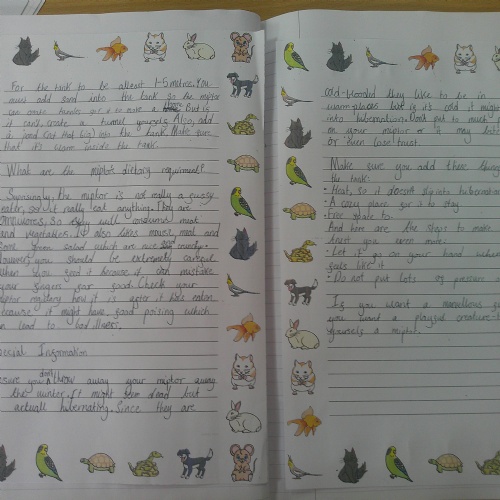 For the tank to be atleast 1-5 mitres. You
must add sand into the tank so the miptor
can create tunnels yes or make a But is
it can't create a tunnel yourself. Also, add
a pond (not that big) into the tank. Make sure
that it's warm inside the tank.
What are the miptor's dietary requirment?
Suprisingly, the miptor is not really a fussy
eater, so it really eat anything. They are
omnivores, so will consume meat
and vegetables. It also likes moves, mud and
some green salad which are nice and crunchy.
However you should be extremely careful
when you feed it because it can mistake
your fingers for food. Check your
miptor mystery how it is after it has eaten
because it might have food poising which
can lead to bad illness.
Special Information
sure you don't throw away your miptor away
the winter. It might seem dead but
actuall hibernating. Since they are
cold-blooded they like to be in
warm places but is it's cold it
into hibernation. Don't put to much
on your miptor or it may
or even lose trust.
Make sure you add these
the tank:
- Heat, so it doesn't slip into hibernation
- A cozy place sor it to stay
- Free space to
And here are the steps to make
trust you even more:
- Let it go on your hand when
seels like it
- Do not put lots of pressure
Is you want a marvellous
you want a playsul creature
yourself a miptor.